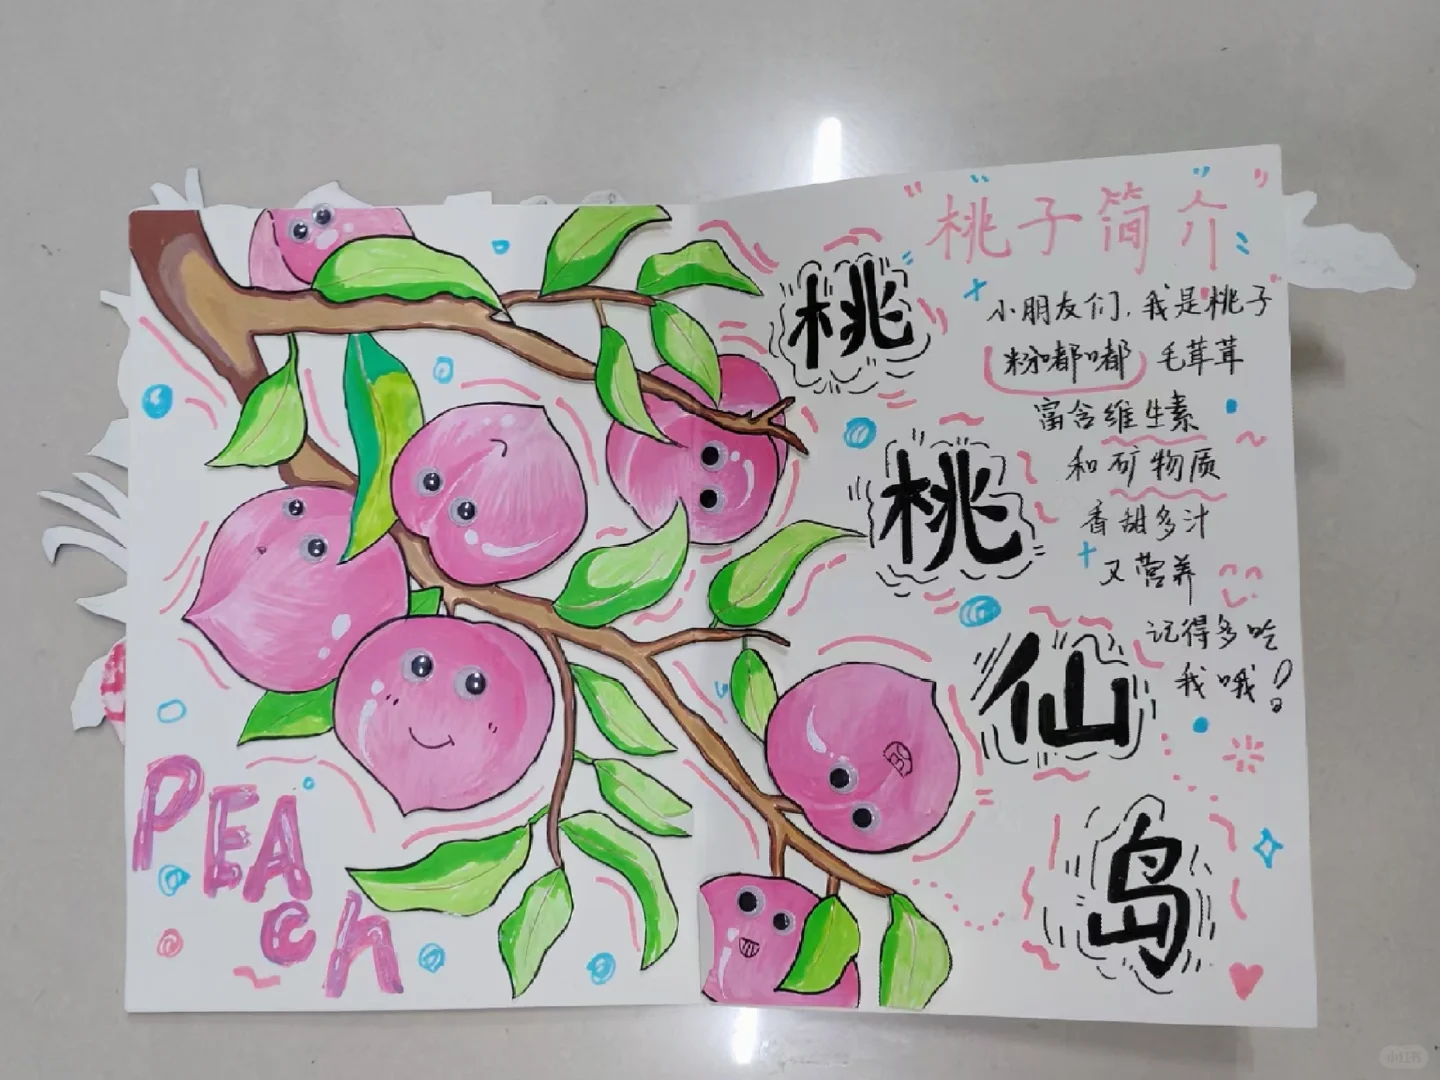 "桃子简介"
小朋友们,我是桃子
粉嘟嘟 毛茸茸
富含维生素
和矿物质
香甜多汁
又营养
记得多吃
我哦!
桃
桃
仙
岛
PEA
ch
小红书